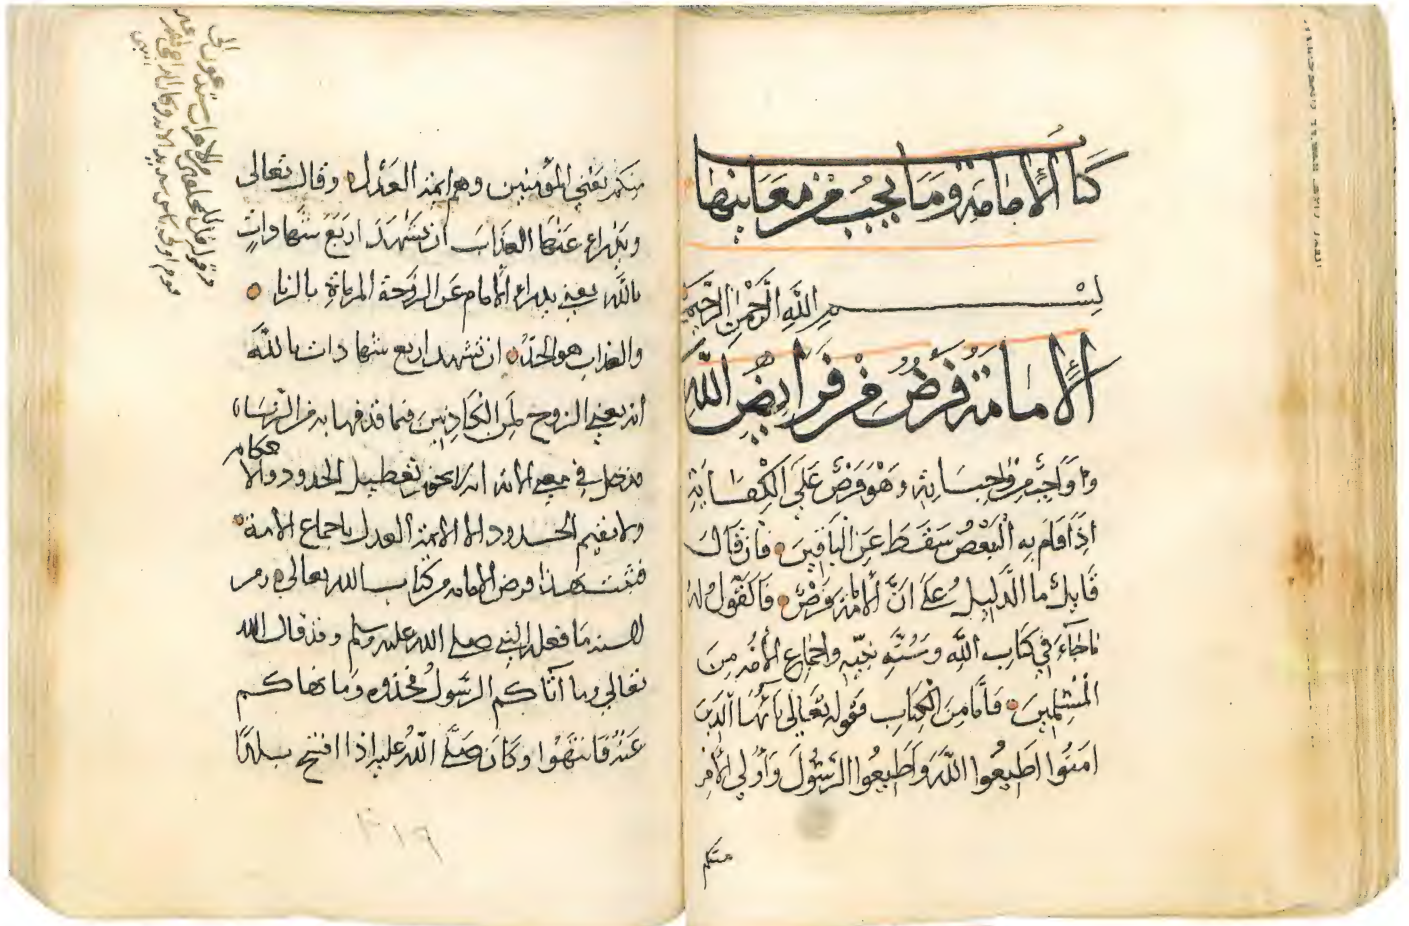 كتاب الإمامة وما يجب من معانيها
بسم الله الرحمن الرحيم
الإمامة فرض من فرايض الله
وواجب من واجباته وهو فرض على الكفاية
اذا قام به البعض سقط عن الباقين فان قال
قايل ما الدليل على ان الامامة فرض فالقول له
ما جاء في كتاب الله وسنة نبيه واجماع الأمة من
المسلمين فأما من الكتاب فقوله تعالى يا أيها الذين
امنوا اطيعوا الله واطيعوا الرسول وأولي الأمر
منكم
منكم يعني المؤمنين وهم ايمة العدل وقال تعالى
ويدراء عنها العذاب ان تشهد اربع شهادات
بالله يعني يدراء الامام عن الزوجة المرماة بالزنا
والعذاب هو الحد ان تشهد اربع شهادات بالله
انه يعني الزوج لمن الكاذبين فيما قذفها به من الزنا
فدخل في معنى انه لا يجوز تعطيل الحدود والاحكام
ولا يقيم الحدود الا الائمة العدل باجماع الامة
فثبت بهذا فرض الامامة من كتاب الله تعالى ومن
السنة ما فعله النبي صلى الله عليه وسلم وقد قال الله
تعالى وما آتاكم الرسول فخذوه وما نهاكم
عنه فانتهوا وكان صلى الله عليه اذا افتتح بلدا